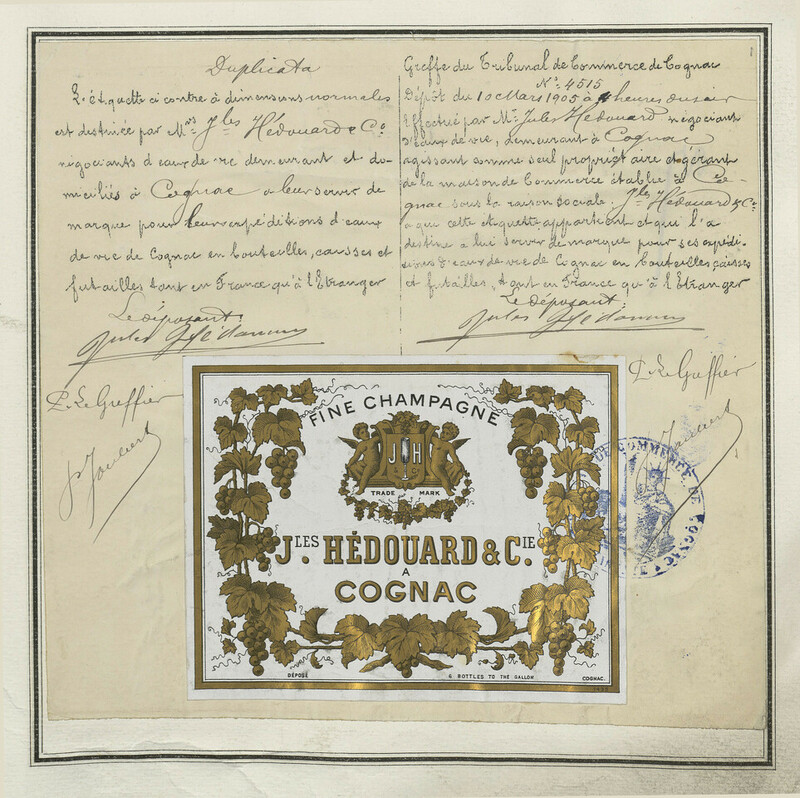 Duplicata
L'étiquette ci contre à dimensions normales
est destinée par Mrs Jles Hédouard & Co
négociants d'eaux de vie demeurant et do-
miciliés à Cognac a leur servir de
marque pour leurs expéditions d'eaux
de vie de Cognac en bouteilles, caisses et
futailles tant en France qu'à l'Etranger
Le déposant.
Jules Hédouard
P. Le Greffier
Greffe du Tribunal de Commerce de Cognac
No. 4515
Dépôt du 10 Mars 1905 à 4 heures du soir
Effectué par Mr Jules Hédouard négociant
d'eaux de vie, demeurant à Cognac
agissant comme seul propriétaire et gérant
de la maison de Commerce établie à Co-
gnac sous la raison sociale. Jles Hédouard & Co
a qui cette etiquette appartient et qui l'a
destine à lui servir de marque pour ses expédi-
tions d'eaux de vie de Cognac en bouteilles caisses
et futailles, tant en France qu'à l'Etranger
Le déposant.
Jules Hédouard
P. Le Greffier
COMMERCE DE COGNAC
FINE CHAMPAGNE
J H
& Co
TRADE MARK
JLES. HÉDOUARD & CIE.
A
COGNAC
DÉPOSÉ
6 BOTTLES TO THE GALLON
COGNAC.